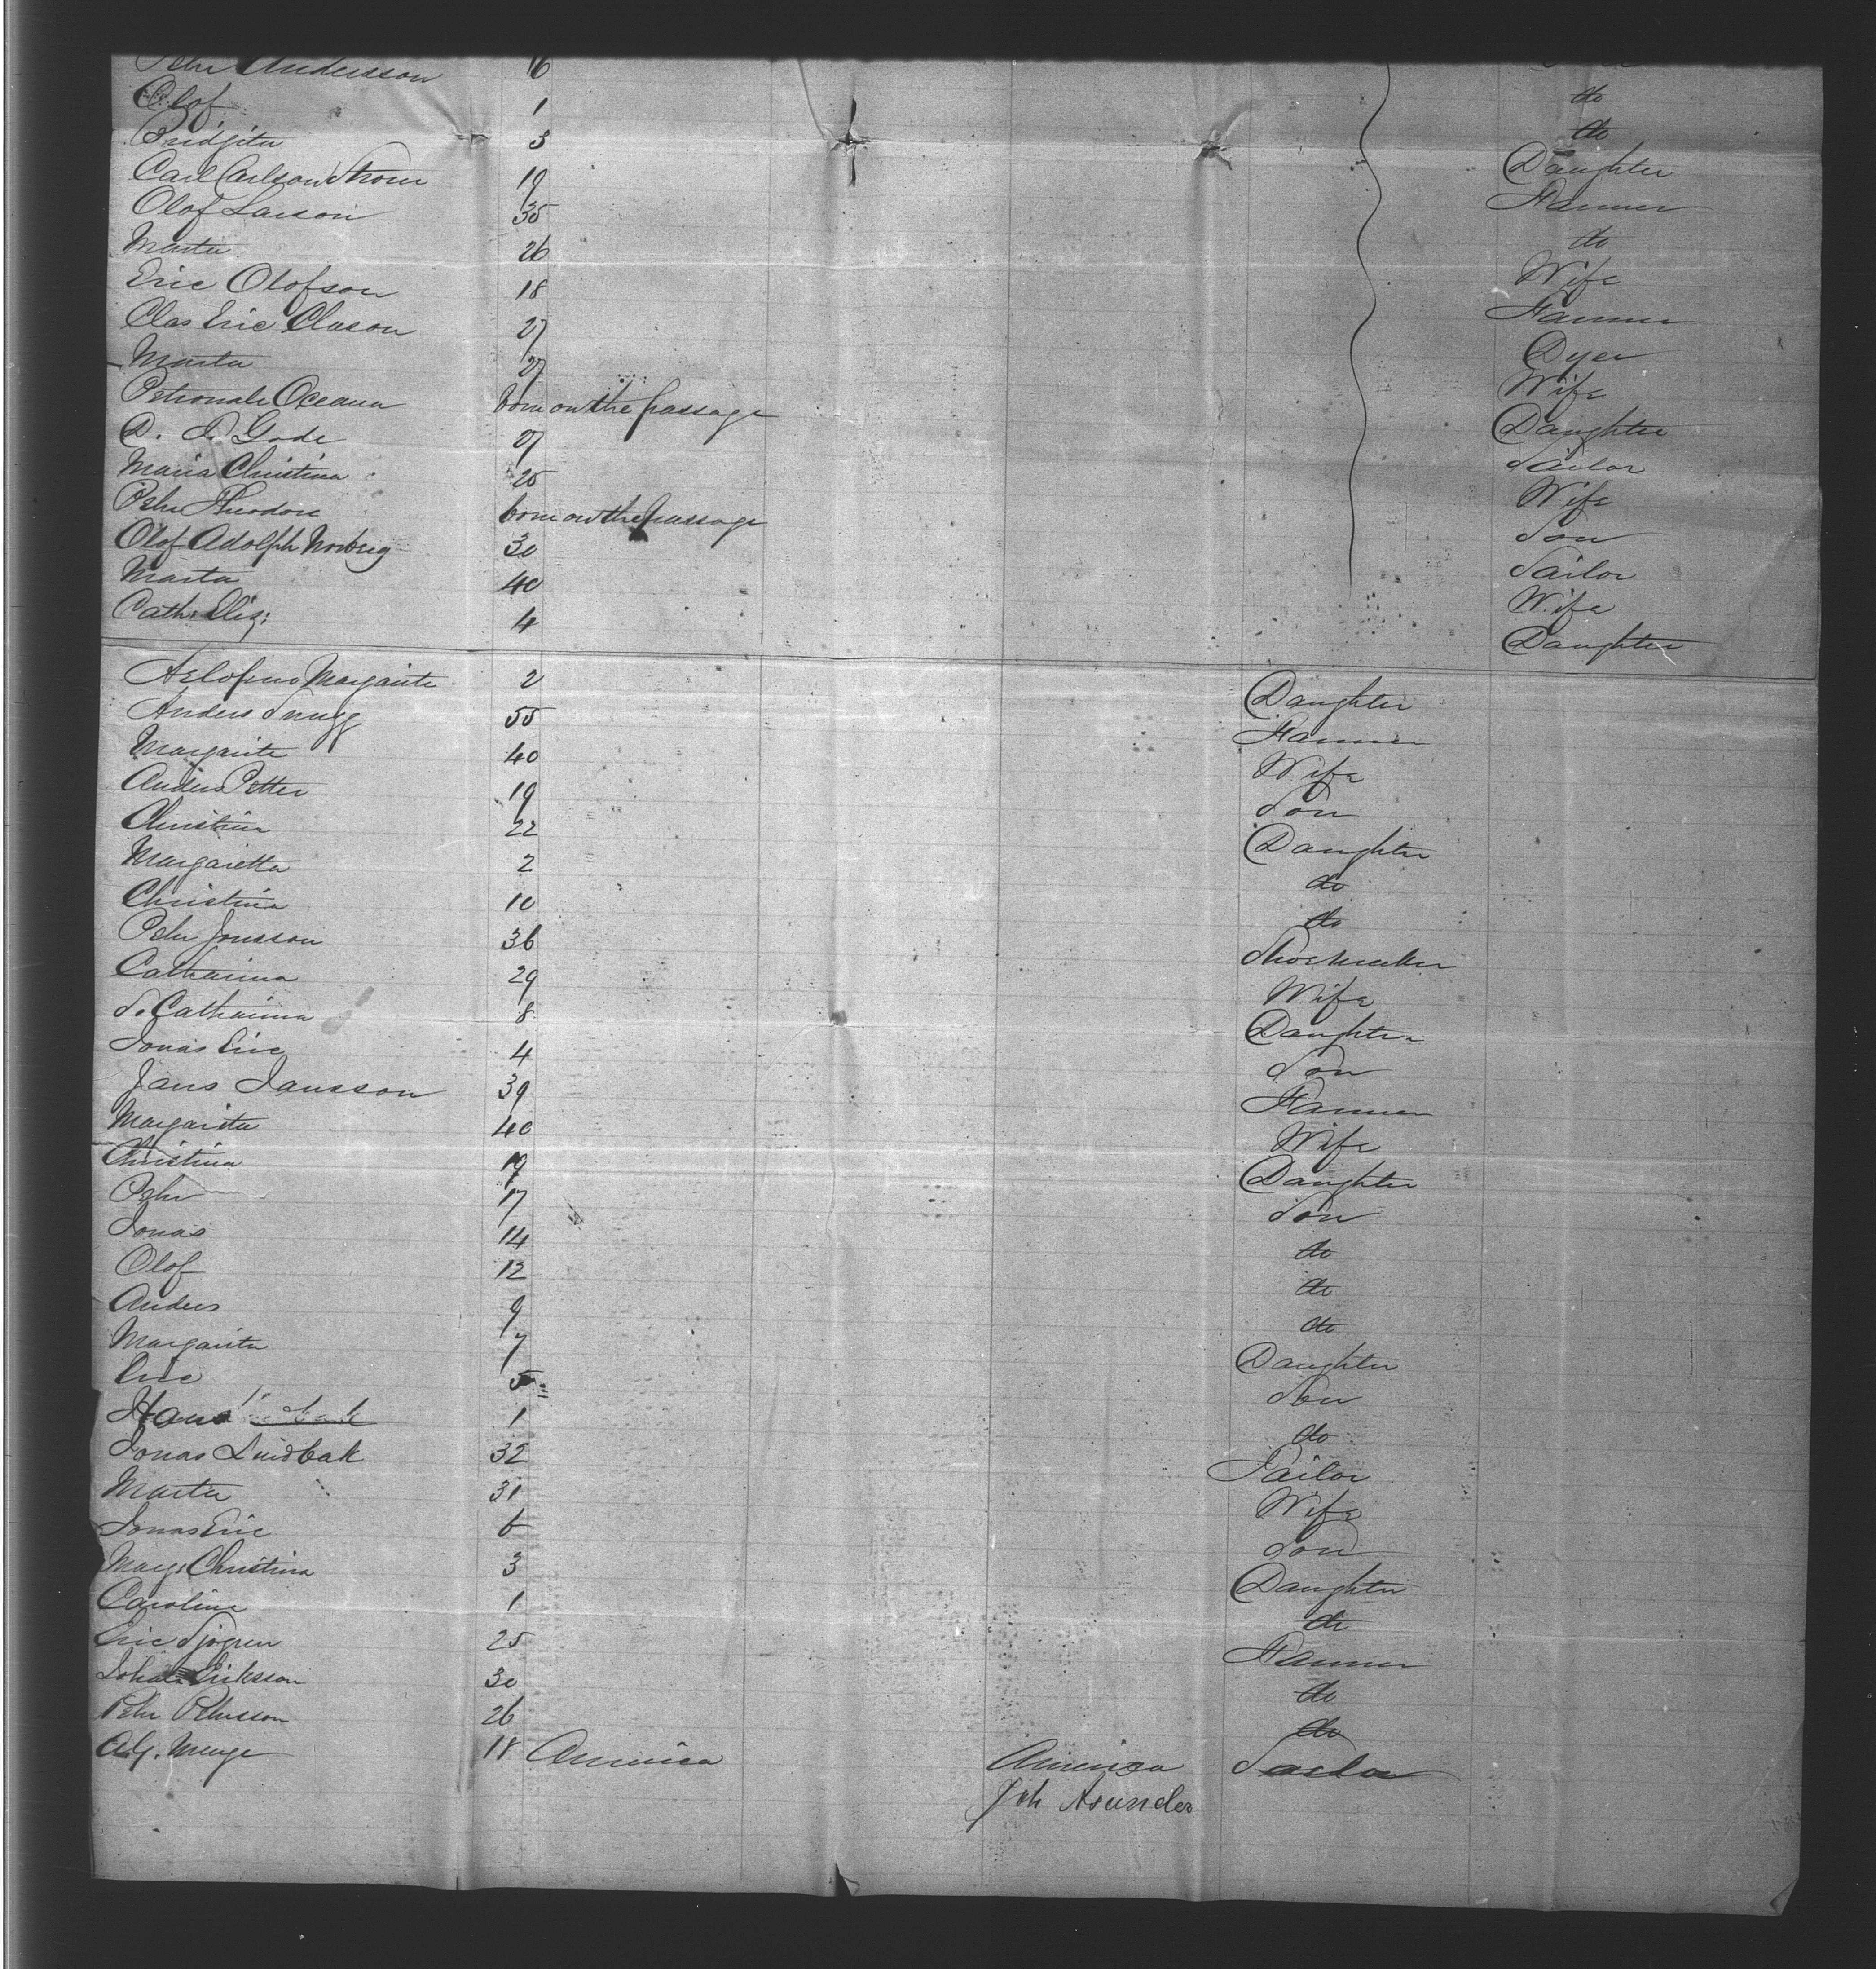 Pehr Andersson 16
Olof 1 do
Bridgita 3 do
Carl Carlson Strom 19 Daughter
Olof Larson 35 Farmer
Marta 26 do
Eric Olofson 18 Wife
Clas Eric Clason 27 Farmer
Marta 27 Dyer
Petronale Oceana born on the passage Wife
27 Daughter
Maria Christina 25 Tailor
Pehr Theodore born on the passage Wife
Olof Adolph Norberg 30 Son
Marta 40 Tailor
Cath: Eliz: 4 Wife
Daughter
Margarite 2 Daughter
Anders Snugg 55 Farmer
Margarite 40 Wife
Anders Petter 19 Son
Christina 22 Daughter
Margaretta 2 do
Christina 10 do
Pehr Jonsson 36 Shoemaker
Catharina 29 Wife
S. Catharina 8 Daughter
Jonas Eric 4 Son
Jans Jansson 39 Farmer
Margarita 40 Wife
Christina 19 Daughter
Pehr 17 Son
Jonas 14 do
Olof 12 do
Anders 9 do
Margarita 7 Daughter
Eric 5 Son
Hans 1 do
Jonas Lindbak 32 Tailor
Marta 31 Wife
Jonas Eric 6 Son
Marg: Christina 3 Daughter
Caroline 1 do
Eric Sjogren 25 Farmer
Johan Erikson 30 do
Pehr Pehrsson 26 do
A.G. Menge 18 America America Sailor
Joh Asunder